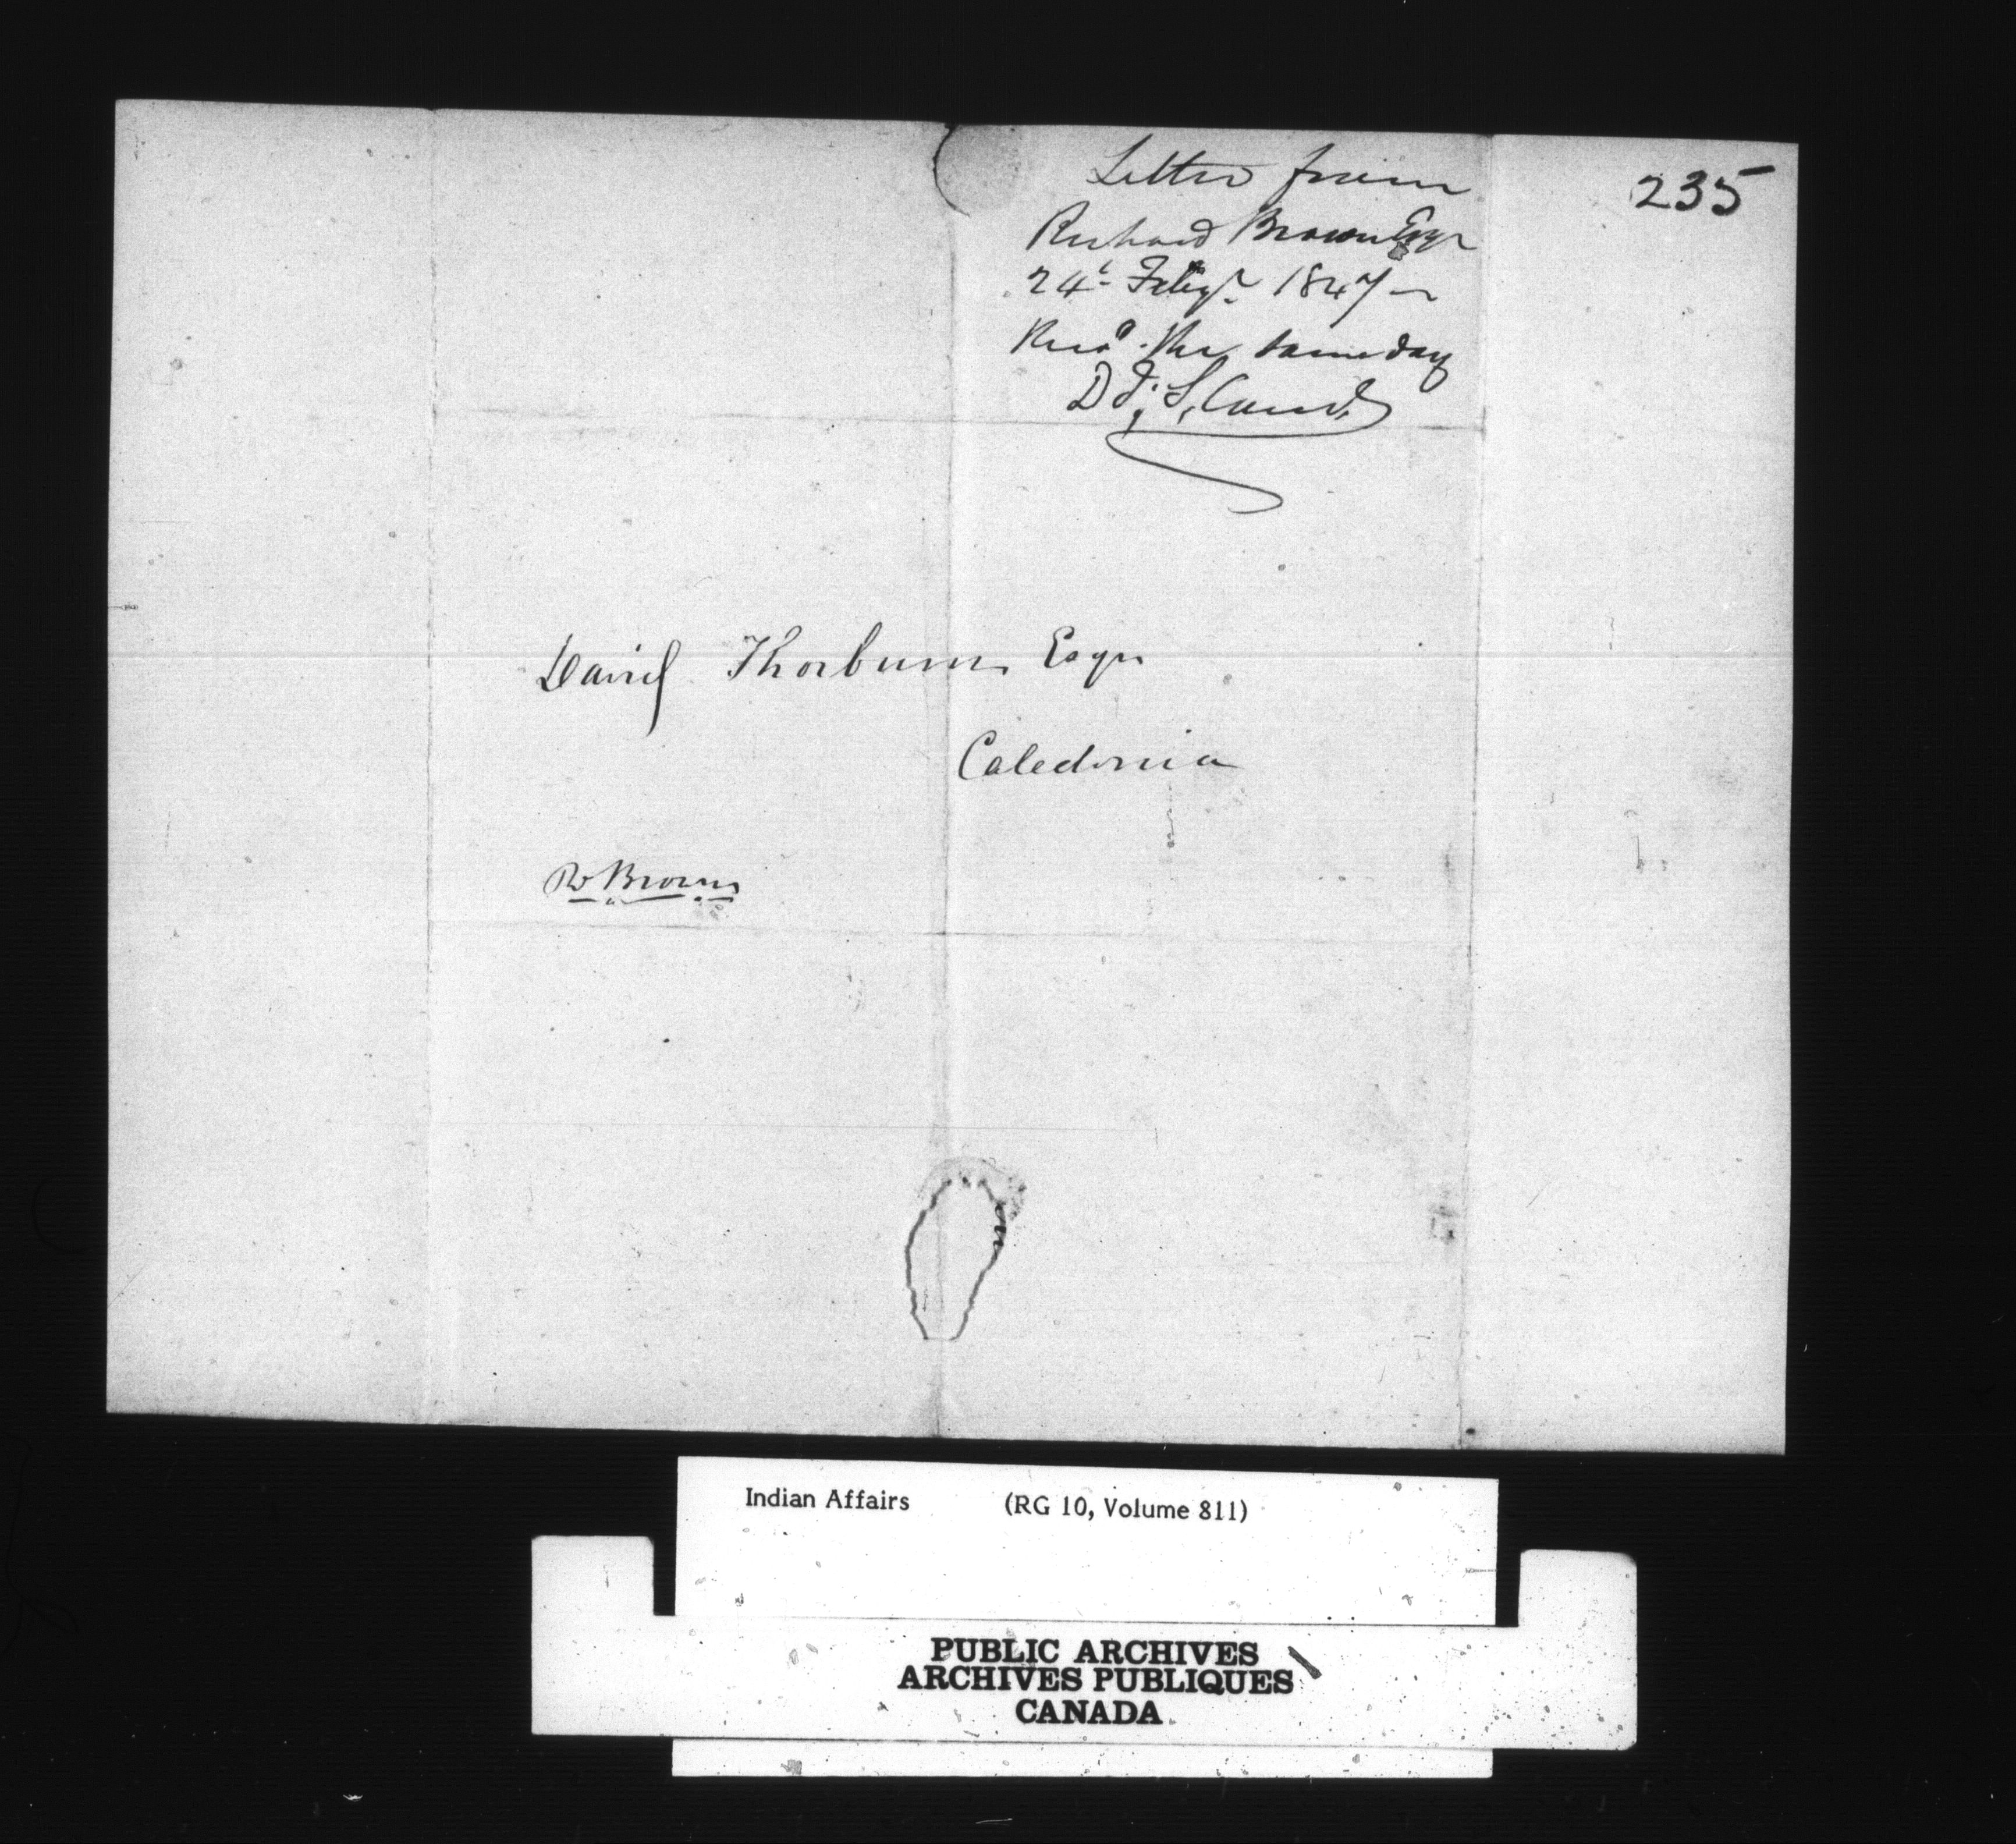 235
Letter from
Richard Brown Esqr
24t Feby 1847
Recd the same day
D T;
David Thorburn Esqr
Caledonia
R Brown
Indian Affairs (RG 10, Volume 811)
PUBLIC ARCHIVES
ARCHIVES PUBLIQUES
CANADA